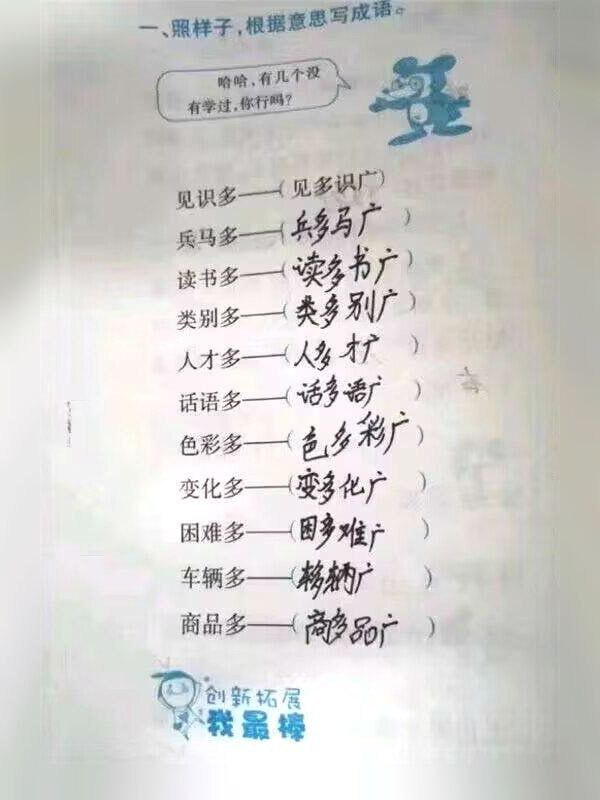 一、照样子，根据意思写成语。
哈哈，有几个没
有学过，你行吗？
见识多——（见多识广）
兵马多——（兵多马广）
读书多——（读多书广）
类别多——（类多别广）
人才多——（人多才广）
话语多——（话多语广）
色彩多——（色多彩广）
变化多——（变多化广）
困难多——（困多难广）
车辆多——（车多辆广）
商品多——（商多品广）
创新拓展
我最棒